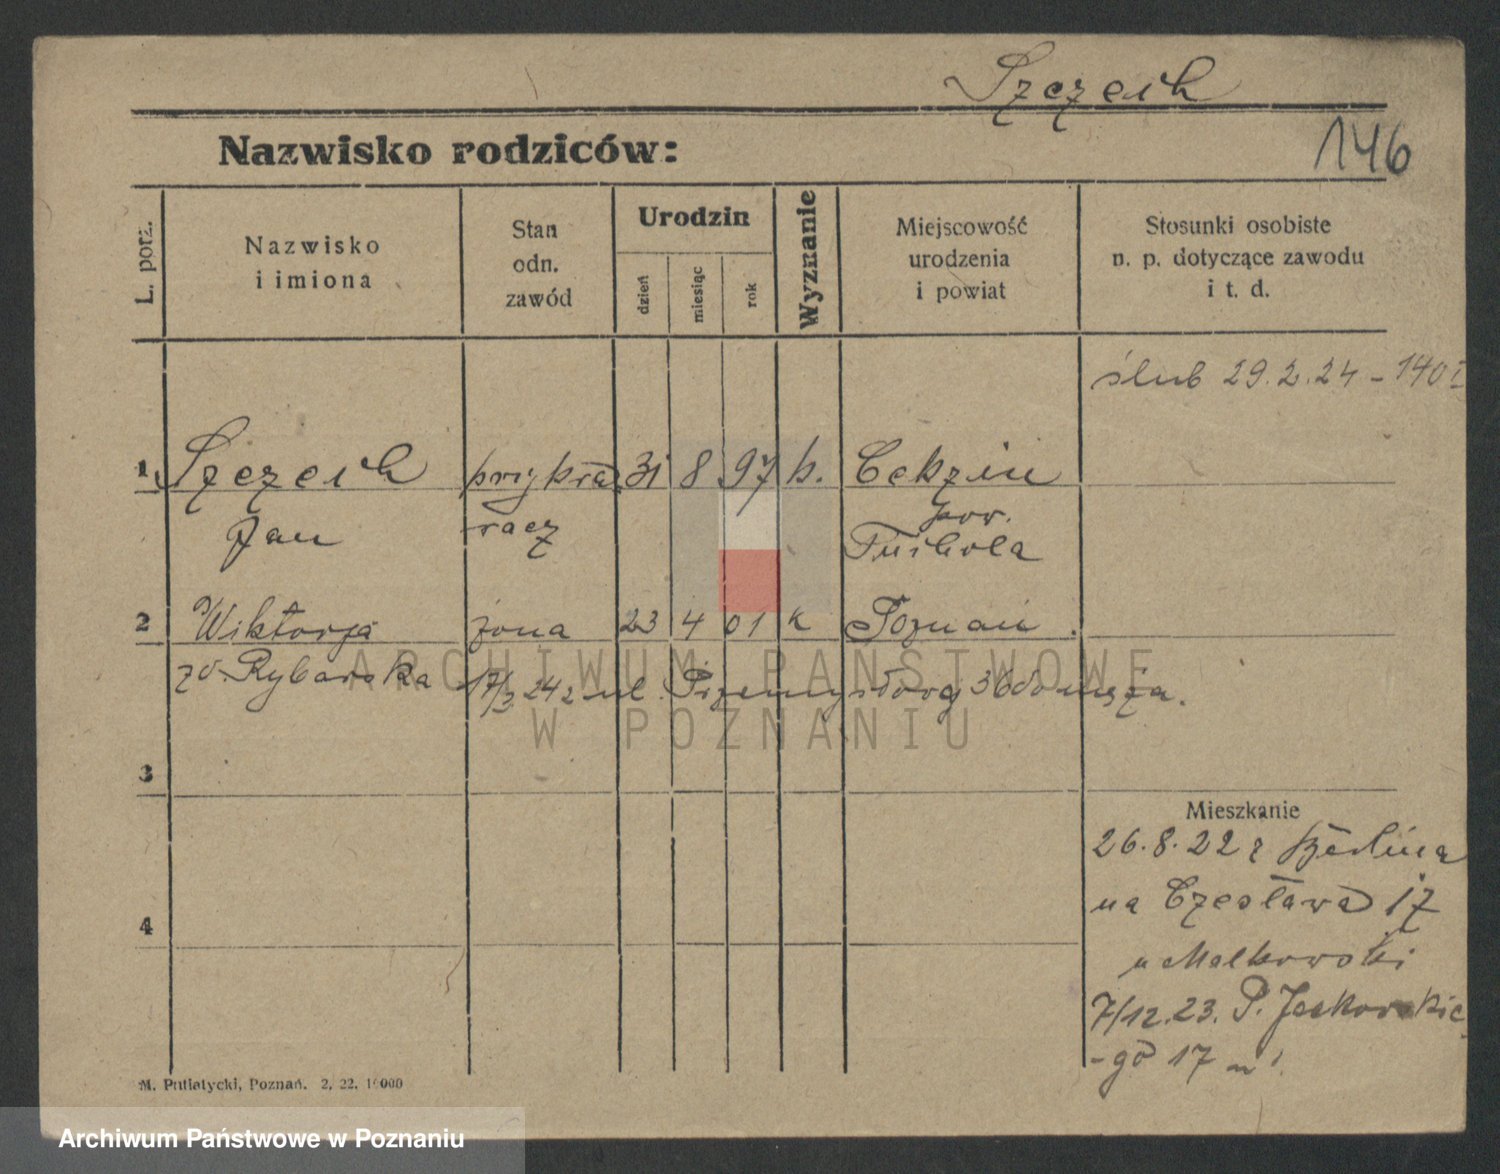 Szczech
146
Nazwisko rodziców:
L. porz.
Nazwisko
i imiona
Stan
odn.
zawód
Urodzin
dzień
miesiąc
rok
Wyznanie
Miejscowość
urodzenia
i powiat
Stosunki osobiste
n. p. dotyczące zawodu
i t. d.
ślub 29.2.24 - 140
1 Szczech przykra 31 8 97 k. Cekzin
Jan racz pow.
Tuchola
2 Wiktorja żona 23 4 01 k Poznań.
zd Rybarska 17/3.24 z ul. Przemysłowej 36 do męża.
3
Mieszkanie
26.8.22 z Berlina
na Czesława 17
u Malkowski
4
7/12.23. P.
-go 17
M. Putiatycki, Poznań. 2. 22. 10000
ARCHIWUM PAŃSTWOWE
W POZNANIU
Archiwum Państwowe w Poznaniu